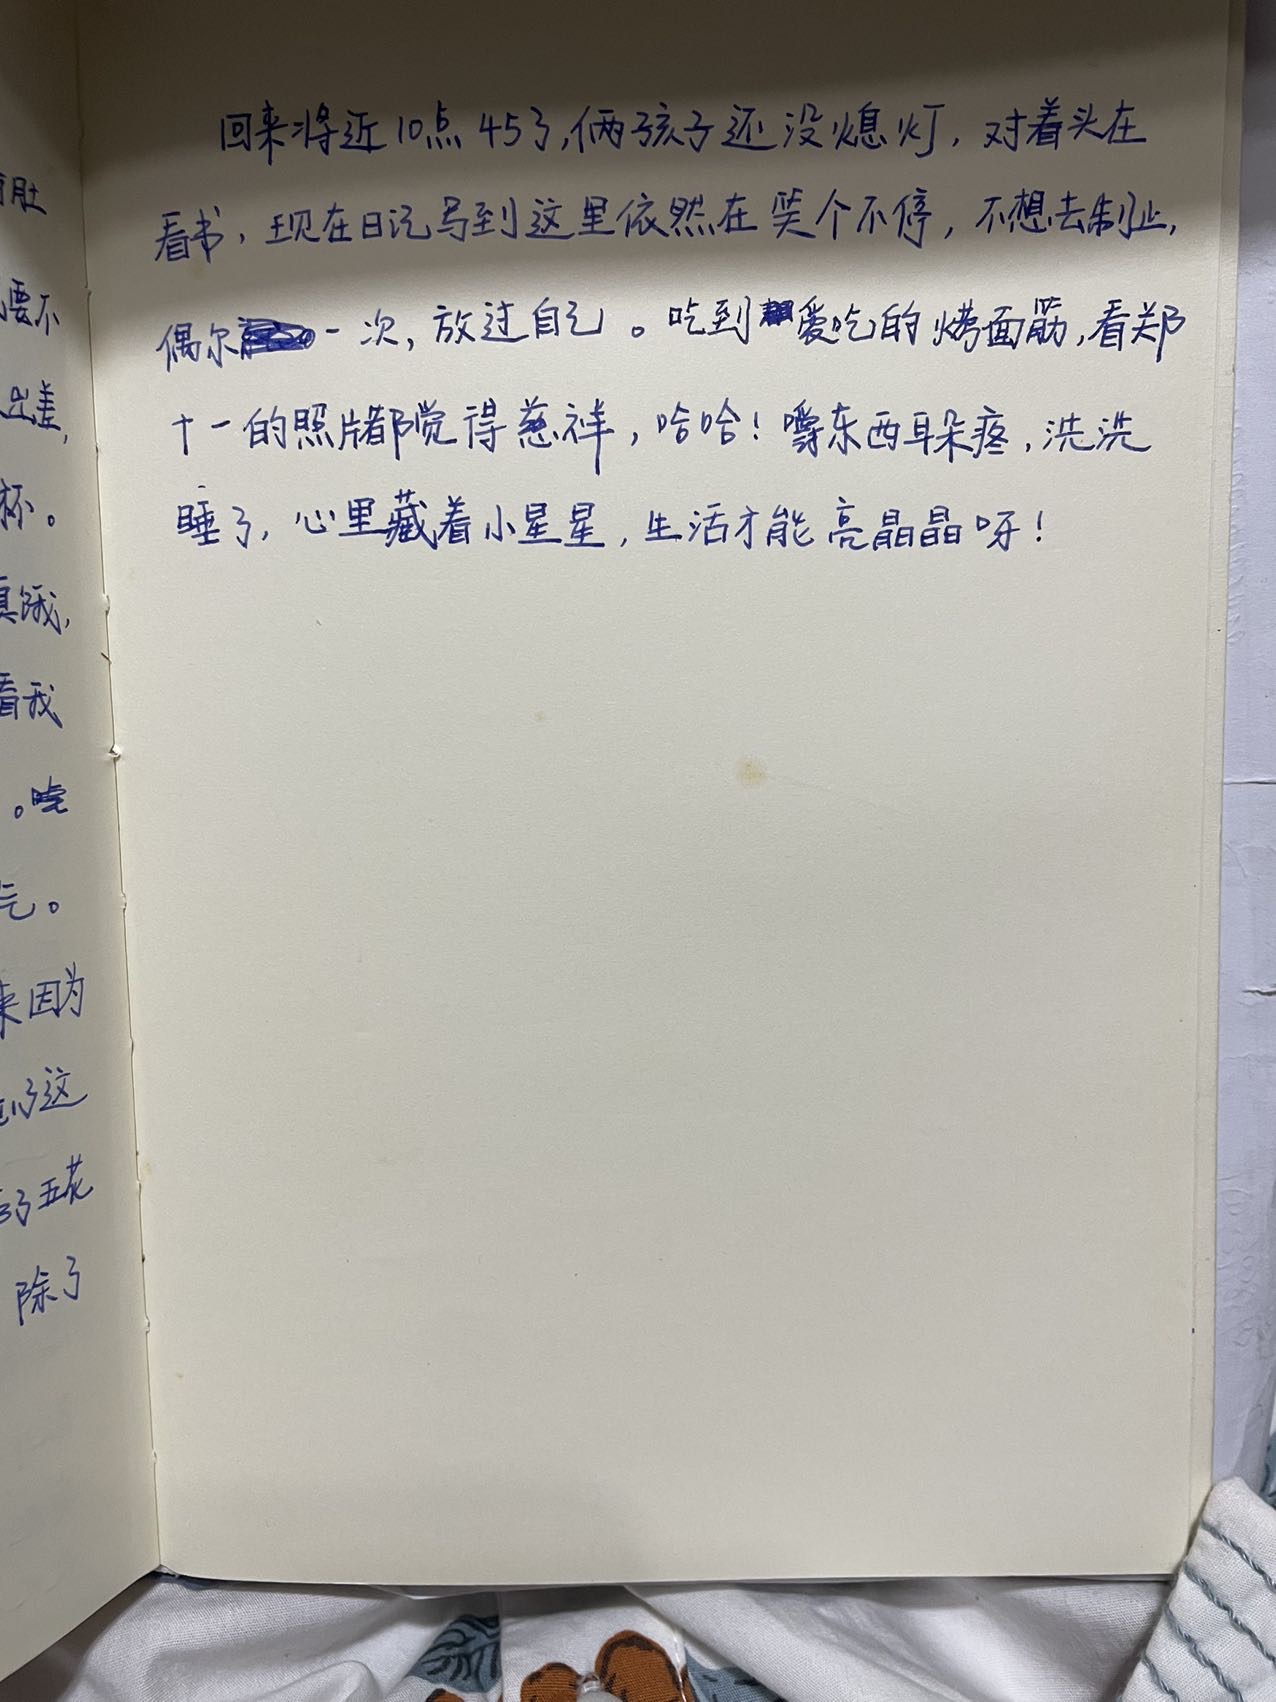 回来将近10点45了,俩孩子还没熄灯,对着头在
看书,现在日记写到这里依然在笑个不停,不想去制止,
偶尔一次,放过自己。吃到爱吃的烤面筋,看郑
十一的照片都觉得慈祥,哈哈!嚼东西耳朵疼,洗洗
睡了,心里藏着小星星,生活才能亮晶晶呀!
肚
要不
出差,
杯。
饿,
看我
。吃
气。
来因为
了这
了五花
除了